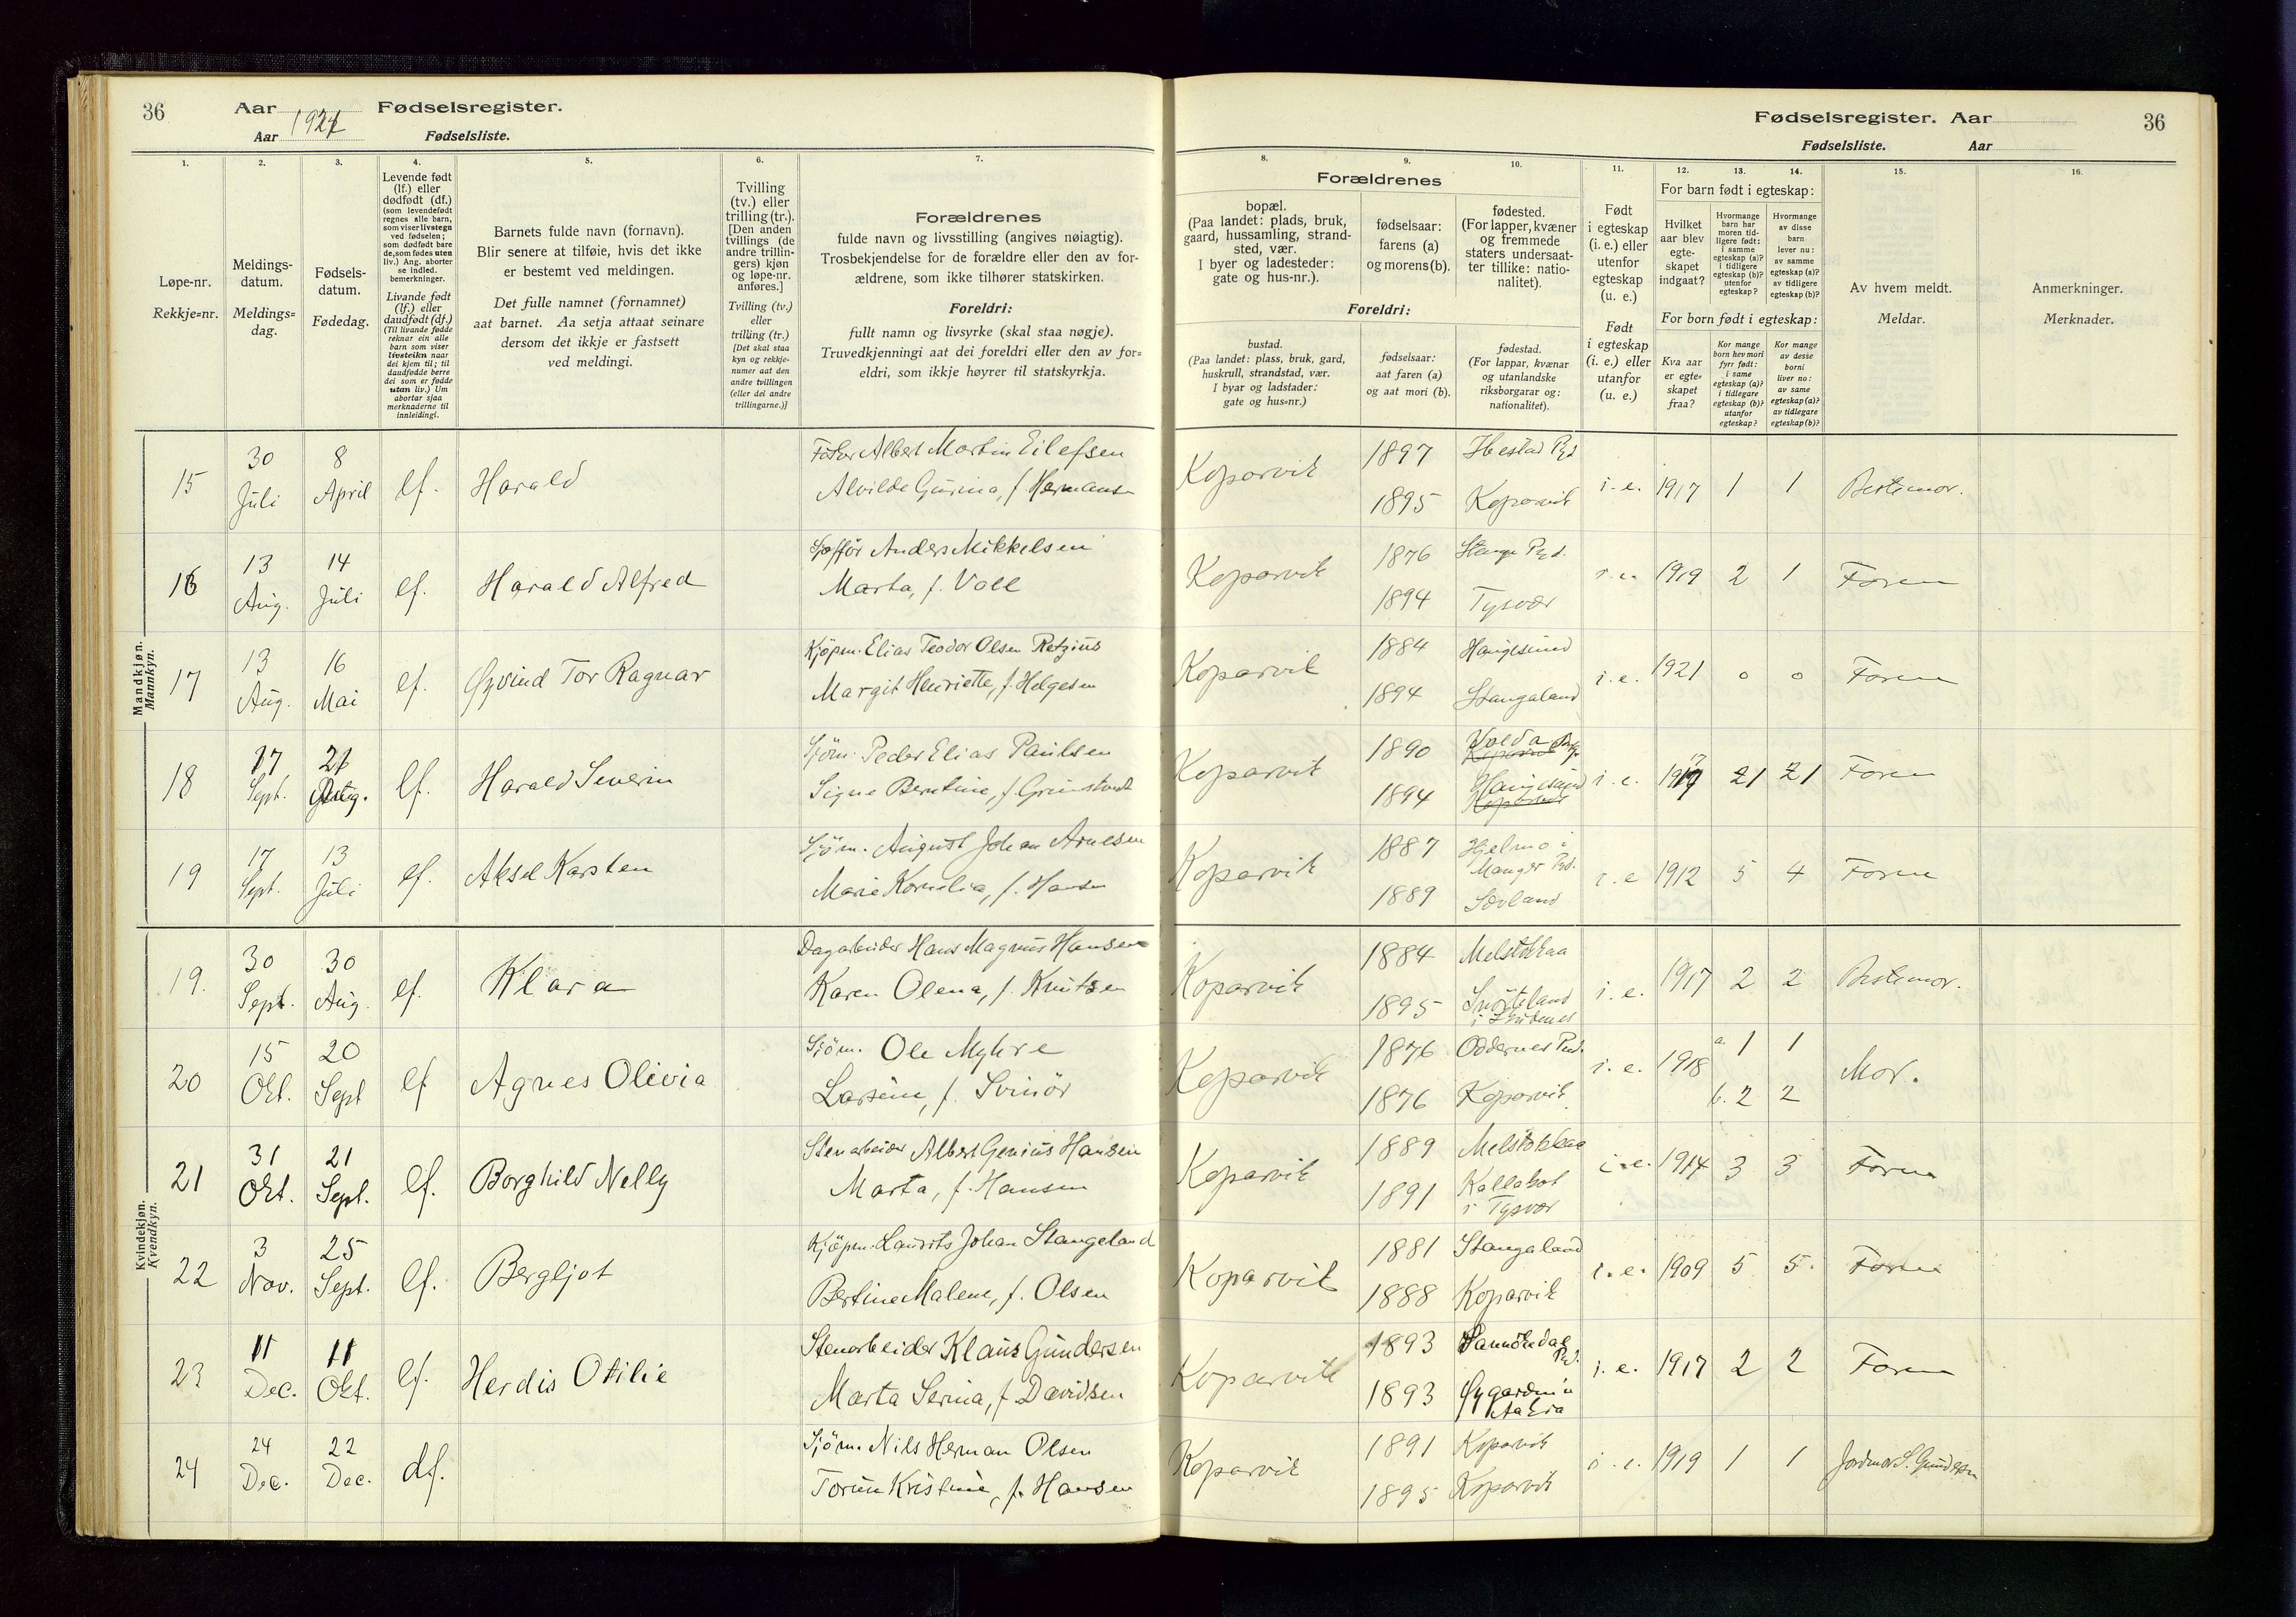 36
Aar
Fødselsregister.
Aar
Fødselsliste.
Fødselsregister. Aar
Fødselsliste.
Aar
36
1.
2.
3.
4.
5.
6.
7.
8.
9.
10.
11.
12.
13.
14.
15.
16.
Løpe-nr.
Rekkje=nr.
Meldings-
datum.
Meldings=
dag.
Fødsels-
datum.
Fødedag.
Levende født
(lf.) eller
dødfødt (df.)
(som levendefødt
regnes alle barn,
som viser livstegn
ved fødselen;
som dødfødt bare
de, som fødes uten
liv.) Ang. aborter
se indled.
bemerkninger.
Livande født
(lf.) eller
daudfødt (df.)
(Til livande fødde
reknar ein alle
barn som viser
livsteikn naar
dei kjem til; til
daudfødde berre
dei som er fødde
utan liv.) Um
abortar sjaa
merknaderne til
innleidingi.
Barnets fulde navn (fornavn).
Blir senere at tilføie, hvis det ikke
er bestemt ved meldingen.
Det fulle namnet (fornamnet)
aat barnet. Aa setja attaat seinare
dersom det ikkje er fastsett
ved meldingi.
Tvilling
(tv.) eller
trilling (tr.).
[Den anden
tvillings (de
andre trillin-
gers) kjøn
og løpe-nr.
anføres.]
Tvilling (tv.)
eller
trilling (tr.)
[Det skal staa
kyn og rekkje-
numer aat den
andre tvillingen
(eller dei andre
trillingarne.)]
Forældrenes
fulde navn og livsstilling (angives nøiagtig).
Trosbekjendelse for de forældre eller den av for-
ældrene, som ikke tilhører statskirken.
Foreldri:
fullt namn og livsyrke (skal staa nøgje).
Truvedkjenningi aat dei foreldri eller den av for=
eldri, som ikkje høyrer til statskyrkja.
Forældrenes
bopæl.
(Paa landet: plads, bruk,
gaard, hussamling, strand-
sted, vær.
I byer og ladesteder:
gate og hus-nr.).
fødselsaar:
farens (a)
og morens (b).
fødested.
(For lapper, kvæner
og fremmede
staters undersaat-
ter tillike: natio-
nalitet).
Foreldri:
bustad.
(Paa landet: plass, bruk, gard,
huskrull, strandstad, vær.
I byar og ladstader:
gate og hus=nr.)
fødselsaar:
aat faren (a)
og aat mori (b).
fødestad.
(For lappar, kvænar
og utanlandske
riksborgarar og:
nationalitet).
Født
i egteskap
(i. e.) eller
utenfor
egteskap
(u. e.)
Født
i egteskap
(i. e.) eller
utanfor
(u. e.)
For barn født i egteskap:
Hvilket
aar blev
egte-
skapet
indgaat?
Hvormange
barn har
moren tid-
ligere født:
i samme
egteskap (a)?
i tidligere
egteskap (b)?
utenfor
egteskap?
Hvormange
av disse
barn
lever nu:
av samme
egteskap (a)?
av tidligere
egteskap (b)?
For born født i egteskap:
Kva aar
er egte-
skapet
fraa?
Kor mange
born hev mori
fyrr født:
i same
egteskap (a)?
i tidlegare
egteskap (b)?
utanfor
egteskap?
Kor mange
av desse
borni
liver no:
av same
egteskap (a)?
av tidlegare
egteskap (b)?
Av hvem meldt.
Meldar.
Anmerkninger.
Merknader.
Mandkjøn.
Mannkyn.
15 30 Juli 8 April lf. Harald
Albert Martin Eilefsen
Alvilde Gurina, f. Hermansen
Koparvik 1897
1895 Koparvik
i. e. 1917 1 1 Bestemor.
16 13 Aug. 14 Juli lf. Harald Alfred
Anders Mikkelsen
Marta, f. Voll
Koparvik 1876 Stange Pgd.
1894 Tysvær
i. e. 1919 2 1 Faren
17 13 Aug. 16 Mai lf. Øyvind Tor Ragnar
Kjøpm. Elias Teodor Olsen Retzius
Margit Henriette, f. Helgesen
Koparvik 1884 Haugesund
1894 Stangaland
i. e. 1921 0 0 Faren
18 17 Sept. 21 Aug. lf. Harald Severin
Sjøm. Peder Elias Paulsen
Signe Berntine, f.
Koparvik 1890 Volda
1894 Haugesund
i. e. 1 1 Faren
19 17 Sept. 13 Juli lf. Aksel Karsten
Sjøm. August Johan Arnesen
Marie Kornelia, f. Hansen
Koparvik 1887 Hjelmo i
Manger Pgd.
1889 Sævland
i. e 1912 5 4 Faren
Kvindekjøn.
Kvendkyn.
19. 30 Sept. 30 Aug. lf. Klara
Dagarbeider Hans Magnus Hansen
Karen Olena, f. Knutsen
Koparvik 1884 Melstokkaa
1895 Snørteland
i Skudenes
i. e. 1917 2 2 Bestemor.
20 15 Okt. 20 Sept lf Agnes Olivia
Sjøm. Ole Myhre
Larsine, f. Svinør
Koparvik 1876 Oddernes Pgd.
1876 Koparvik
i. e. 1918 a. 1 1 Mor.
b. 2 2
21 31 Okt. 21 Sept. lf. Borghild Nelly
Stenarbeider Albert Genius Hansen
Marta, f. Hansen
Koparvik 1889 Melstokkaa
1891 Kallakot
i Tysvær
i. e. 1914 3 3 Faren
22 3 Nov. 25 Sept. lf. Bergljot
Kjøpm. Laurits Johan Stangeland
Bertine Malene, f. Olsen
Koparvik 1881 Stangaland
1888 Koparvik
i. e. 1909 5 5. Faren
23 11 Dec. 11 Okt. lf. Herdis Otilie
Stenarbeider Klaus Gundersen
Marta Serina, f. Davidsen
Koparvik 1893 Sannökedal
Pgd.
1893 Øygarden i
i. e. 1917 2 2 Faren
24 24 Dec. 22 Dec. df.
Sjøm. Nils Herman Olsen
Torun Kristine, f. Hansen
Koparvik 1891 Koparvik
1895 Koparvik
i. e. 1919 1 1 Jordmor S. Gundersen